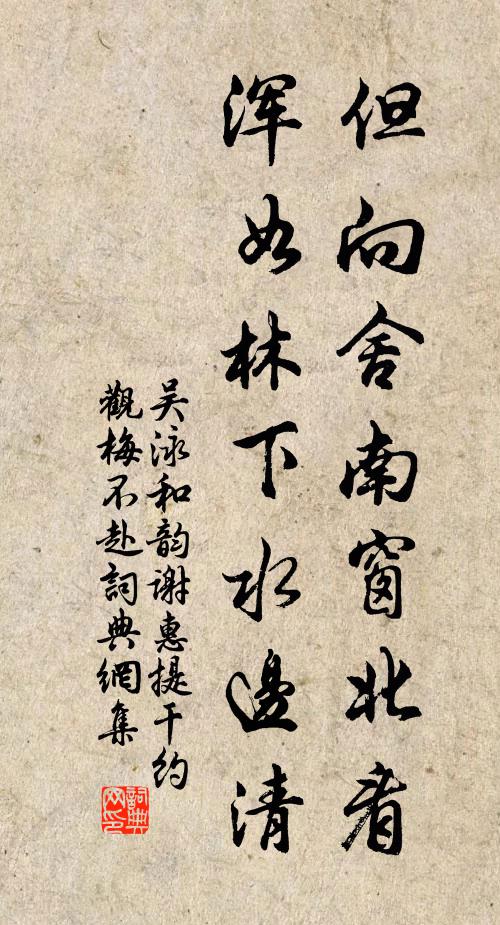 但向舍南窗北看
浑如林下水邊清
吴泳和韵谢惠提干约
觀梅不赴詞典網集
詞典
网印